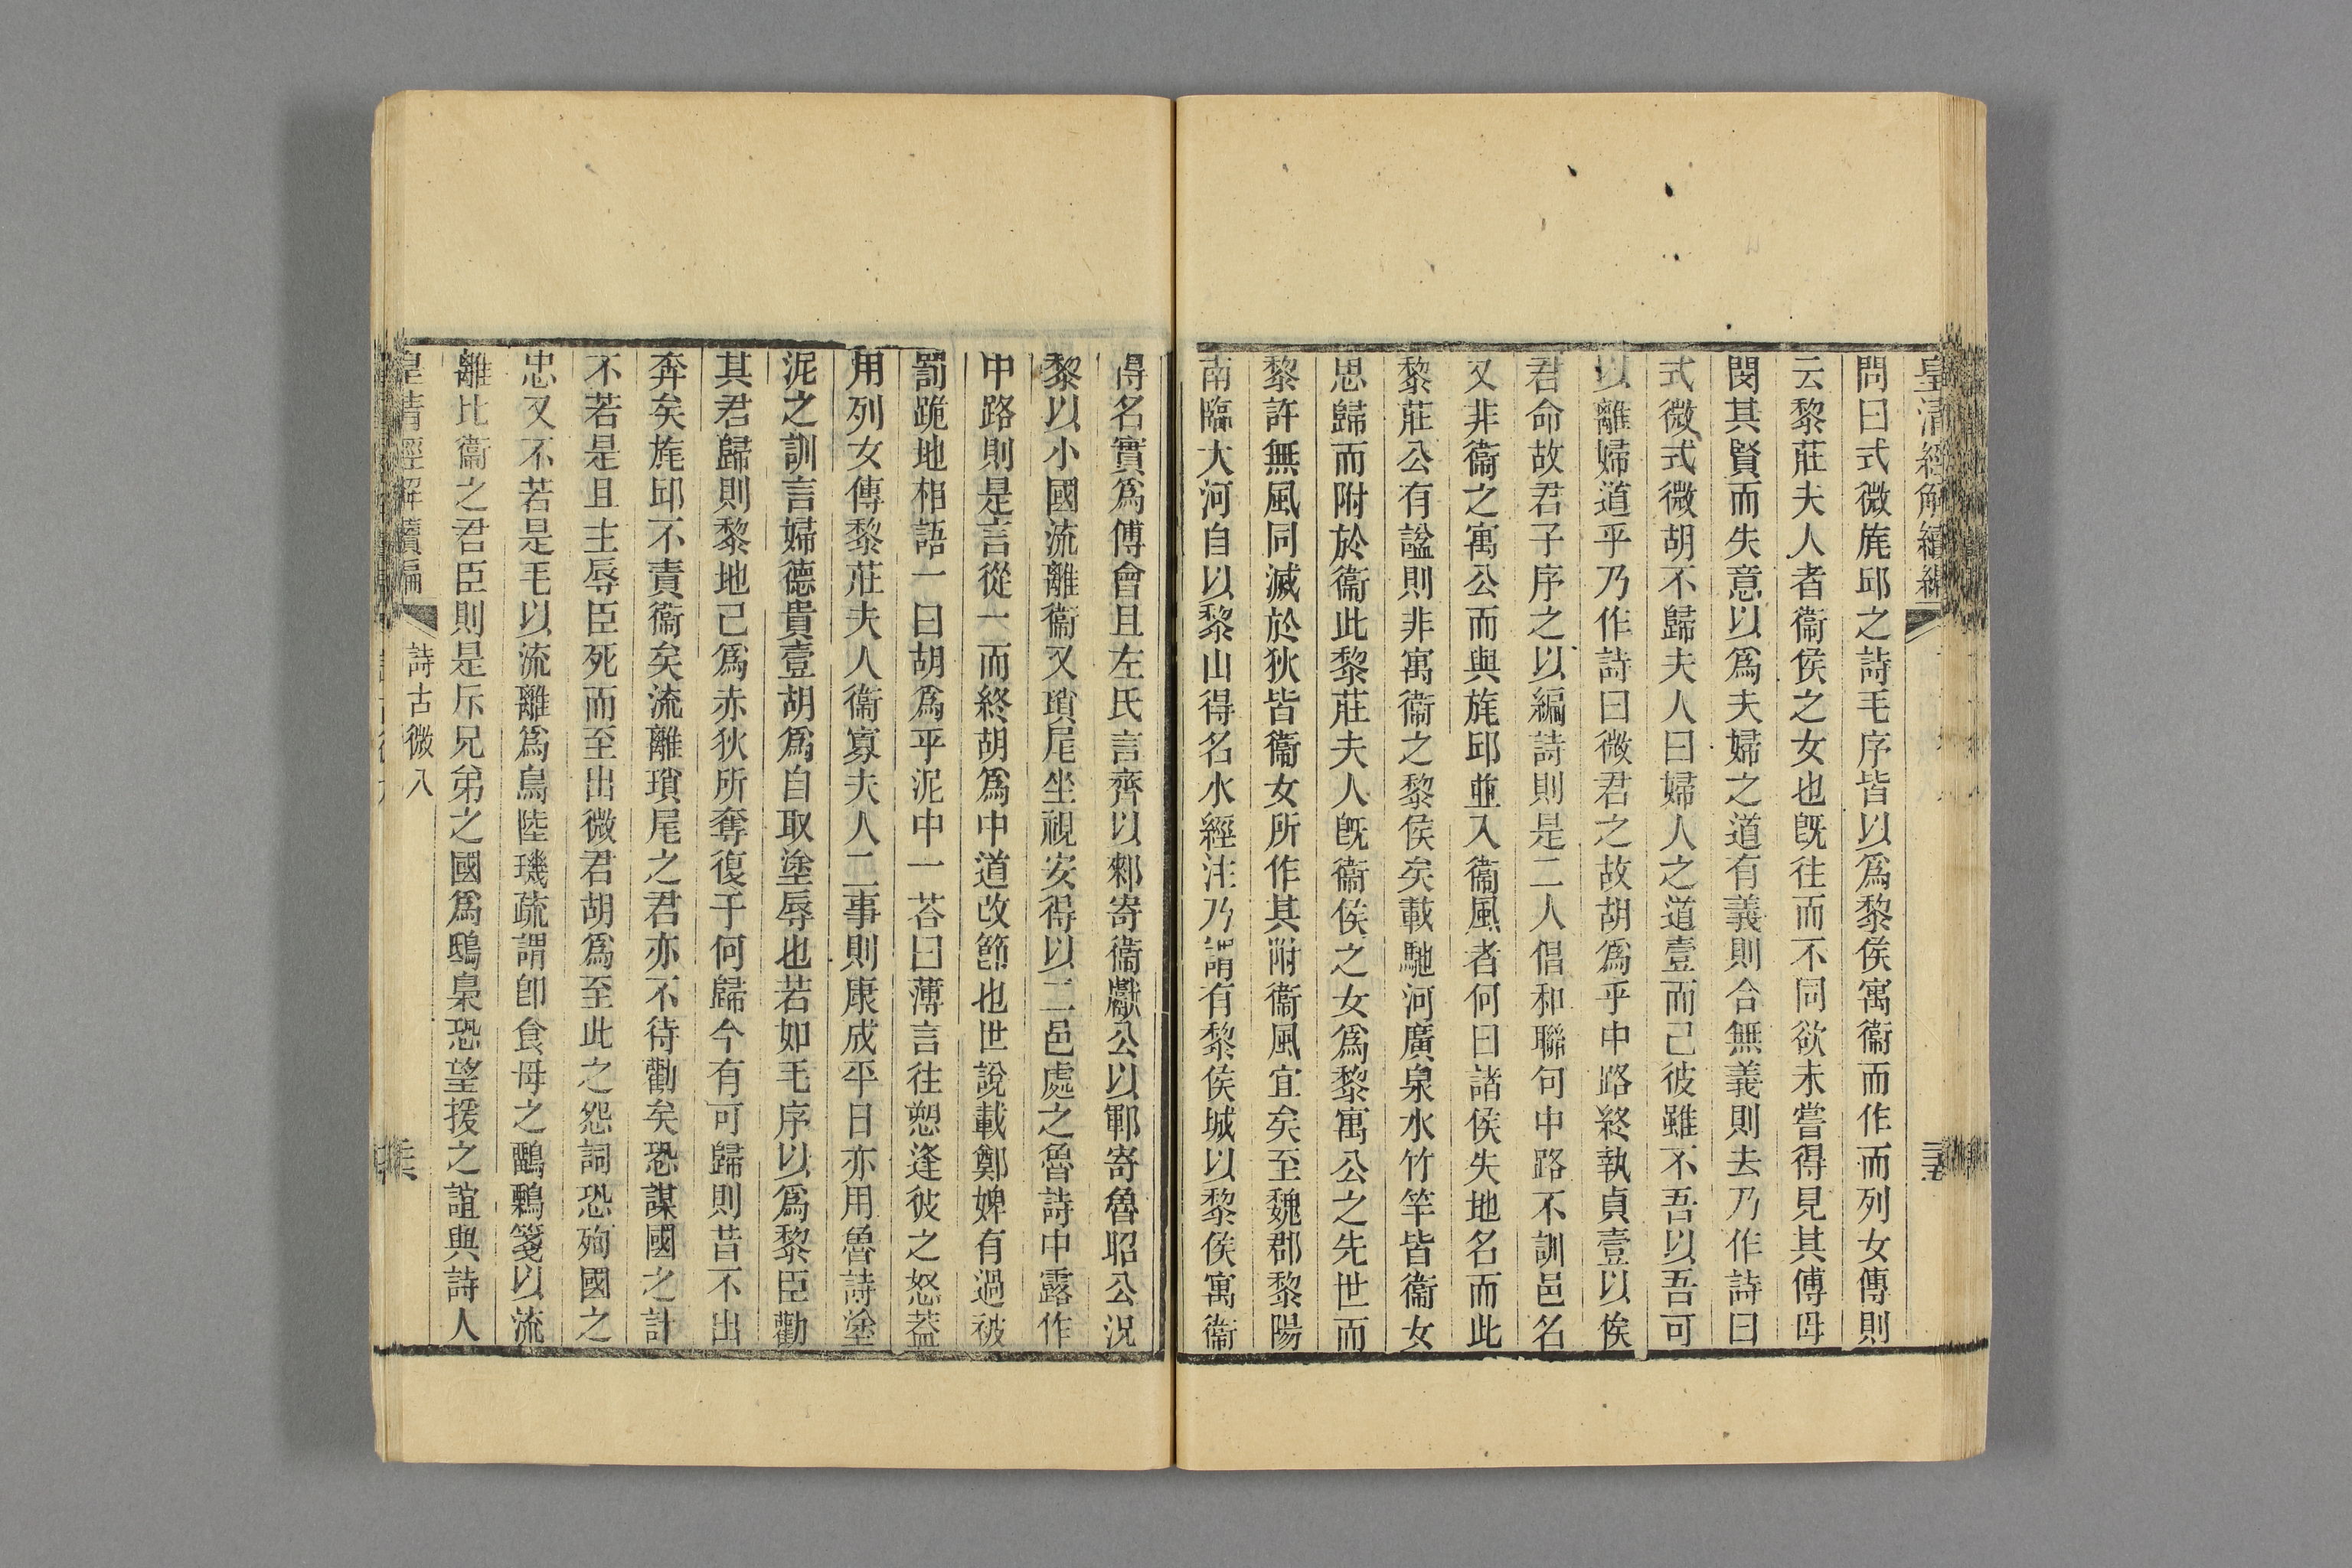 皇清經解續編
問曰式微旄邱之詩毛序皆以爲黎侯寓衞而作而列女傳則
云黎莊夫人者衞侯之女也旣往而不同欲未嘗得見其傅母
閔其賢而失意以爲夫婦之道有義則合無義則去乃作詩曰
式微式微胡不歸夫人曰婦人之道壹而己彼雖不吾以吾可
以離婦道乎乃作詩曰微君之故胡爲乎中路終執貞壹以俟
君命故君子序之以編詩則是二人倡和聯句中路不訓邑名
又非衞之寓公而與旄邱並入衞風者何曰諸侯失地名而此
黎莊公有諡則非寓衞之黎侯矣載馳河廣泉水竹竿皆衞女
思歸而附於衞此黎莊夫人旣衞侯之女爲黎寓公之先世而
黎許無風同滅於狄皆衞女所作其附衞風宜矣至魏郡黎陽
南臨大河自以黎山得名水經注乃謂有黎侯城以黎侯寓衞
得名實爲傅會且左氏言齊以郲寄衞獻公以鄆寄魯昭公況
黎以小國流離衞又瑣尾坐視安得以二邑處之魯詩中露作
中路則是言從一而終胡爲中道改節也世說載鄭婢有過被
罰跪地相語一曰胡爲乎泥中一荅曰薄言往愬逢彼之怒葢
用列女傳黎莊夫人衞寡夫人二事則康成平日亦用魯詩塗
泥之訓言婦德貴壹胡爲自取塗辱也若如毛序以爲黎臣勸
其君歸則黎地己爲赤狄所奪復于何歸今有可歸則昔不出
奔矣旄邱不責衞矣流離瑣尾之君亦不待勸矣恐謀國之計
不若是且主辱臣死而至出微君胡爲至此之怨詞恐殉國之
忠又不若是毛以流離爲鳥陸璣疏謂卽食母之鸝鶹箋以流
離比衞之君臣則是斥兄弟之國爲鴟梟恐望援之誼與詩人
皇清經解續編
詩古微八